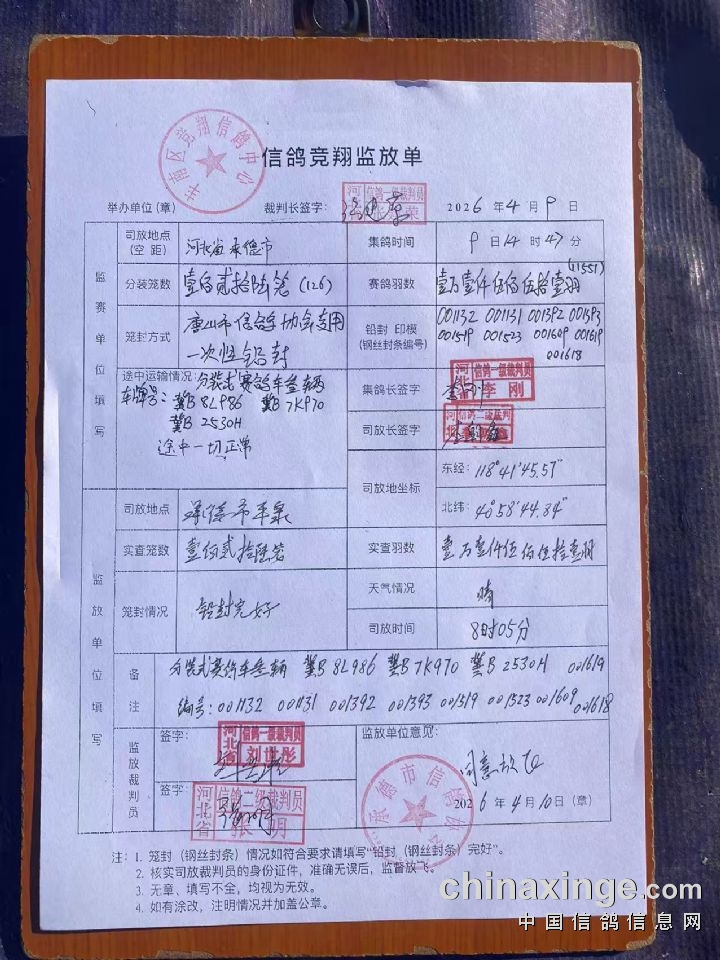 丰南区竞翔信鸽中心
信鸽竞翔监放单
举办单位(章) 裁判长签字: 河 信鸽一级裁判员 荣 2026年4月9日
监赛单位填写
司放地点(空距) 河北省承德市 集鸽时间 9日14时47分
分装笼数 壹佰贰拾陆笼(126) 赛鸽羽数 壹万壹仟伍佰伍拾壹羽(11551)
笼封方式 唐山市信鸽协会专用一次性铅封 铅封 印模(钢丝封条编号) 001132 001131 001392 001393
001519 001523 001609 001619
001618
途中运输情况: 分装式赛鸽车叁辆
车牌号: 冀B 8L986 冀B 7K970
冀B 2530H
途中一切正常
集鸽长签字 信鸽一级裁判员 李刚
司放长签字 信鸽二级裁判
司放地坐标 东经: 118°41'45.57"
北纬: 40°58'44.84"
监放单位填写
司放地点 承德市平泉
实查笼数 壹佰贰拾陆笼 实查羽数 壹万壹仟伍佰伍拾壹羽
笼封情况 铅封完好 天气情况 晴
司放时间 8时05分
备注 分装式赛鸽车叁辆 冀B 8L986 冀B 7K970 冀B 2530H 001619
编号: 001132 001131 001392 001393 001519 001523 001609 001618
监放裁判员
签字: 河北省 信鸽一级裁判员 刘世彤
签字: 河北省 信鸽二级裁判员 张明
监放单位意见:
同意放飞
承德市信鸽协会
2026年4月10日(章)
注: 1. 笼封(钢丝封条)情况如符合要求请填写“铅封(钢丝封条)完好”。
2. 核实司放裁判员的身份证件,准确无误后,监督放飞。
3. 无章、填写不全,均视为无效。
4. 如有涂改,注明情况并加盖公章。
chinaxinge.com
中国信鸽信息网